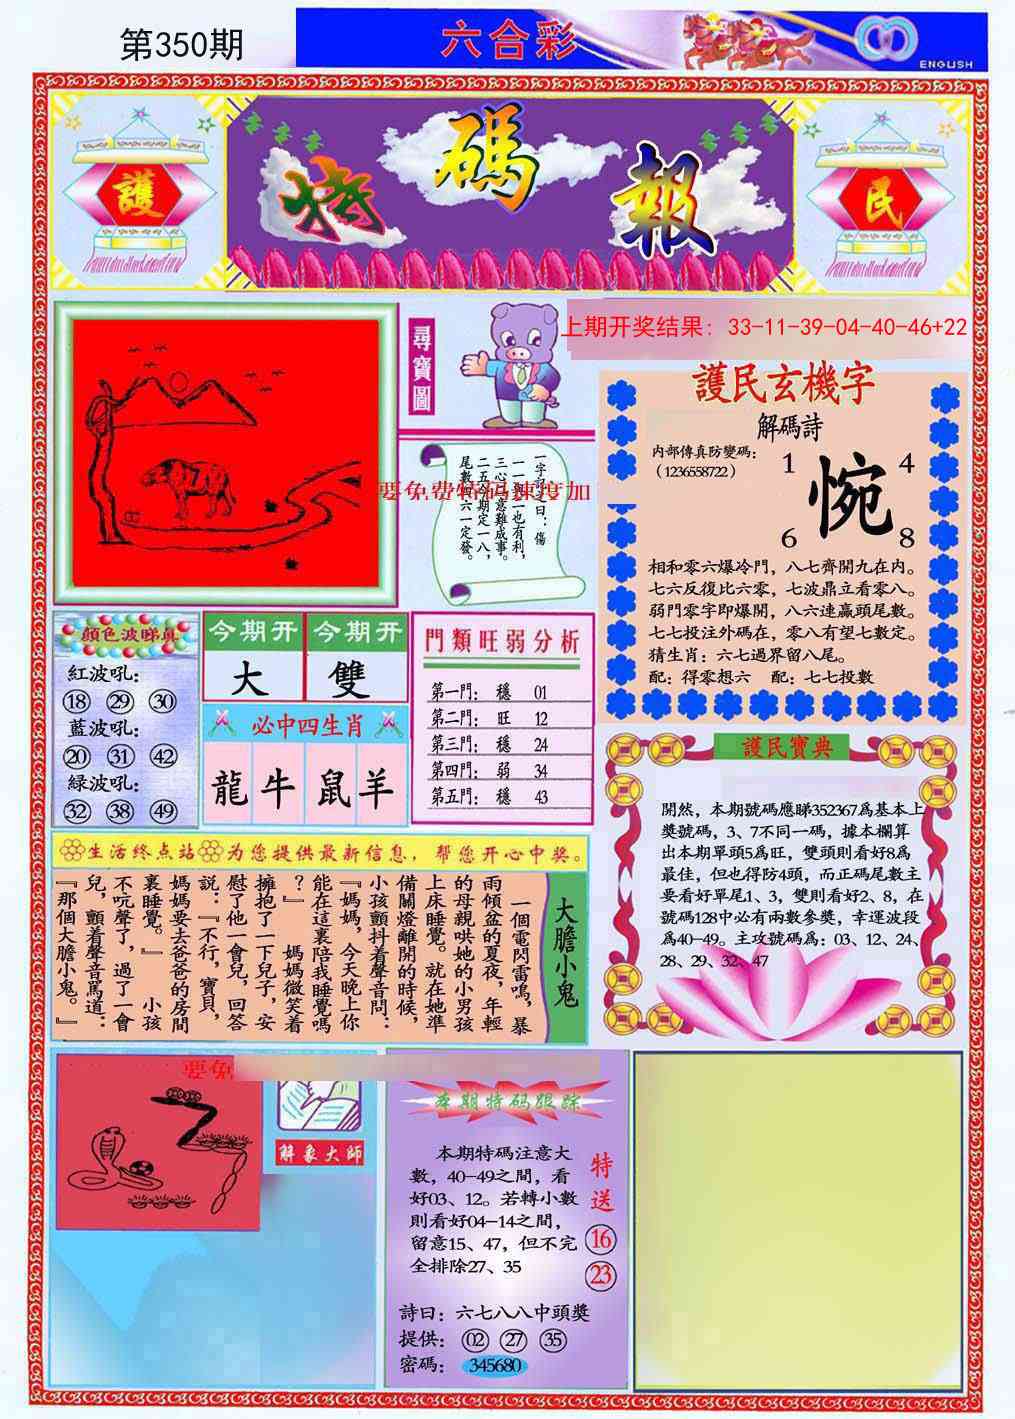 第350期
六合彩
ENGLISH
特碼報
護
民
尋寶圖
上期开奖结果：33-11-39-04-40-46+22
護民玄機字
解碼詩
內部傳真防變碼：
（1236558722）
1 4
惋
6 8
相和零六爆冷門，八七齊開九在內。
七六反復比六零，七波鼎立看零八。
弱門零字即爆開，八六連贏頭尾數。
七七投注外碼在，零八有望七數定。
猜生肖：六七過界留八尾。
配：得零想六 配：七七投數
一字記之曰：傷
二五今期定一八，
顏色波睇真
紅波吼：
18 29 30
藍波吼：
20 31 42
綠波吼：
32 38 49
今期开 今期开
大 雙
必中四生肖
龍 牛 鼠 羊
門類旺弱分析
第一門： 穩 01
第二門： 旺 12
第三門： 穩 24
第四門： 弱 34
第五門： 穩 43
護民寶典
開然，本期號碼應睇352367爲基本上
獎號碼，3、7不同一碼，據本欄算
出本期單頭5爲旺，雙頭則看好8爲
最佳，但也得防4頭，而正碼尾數主
要看好單尾1、3，雙則看好2、8，在
號碼128中必有兩數參獎，幸運波段
爲40-49。主攻號碼爲：03、12、24、
28、29、32、47
生活终点站 为您提供最新信息，帮您开心中奖。
大膽小鬼
一個電閃雷鳴，暴
雨傾盆的夏夜，年輕
的母親哄她的小男孩
上床睡覺。就在她準
備關燈離開的時候，
小孩顫抖着聲音問：
『媽媽，今天晚上你
能在這裏陪我睡覺嗎
？』 媽媽微笑着
擁抱了一下兒子，安
慰了他一會兒，回答
説：『不行，寶貝，
媽媽要去爸爸的房間
裏睡覺。』 小孩
不吭聲了，過了一會
兒，顫着聲音罵道：
『那個大膽小鬼。』
解象大師
本期特码跟踪
本期特碼注意大
數，40-49之間，看
好03、12。若轉小數
則看好04-14之間，
留意15、47，但不完
全排除27、35
特送
16
23
詩曰：六七八八中頭獎
提供：02 27 35
密碼：345680